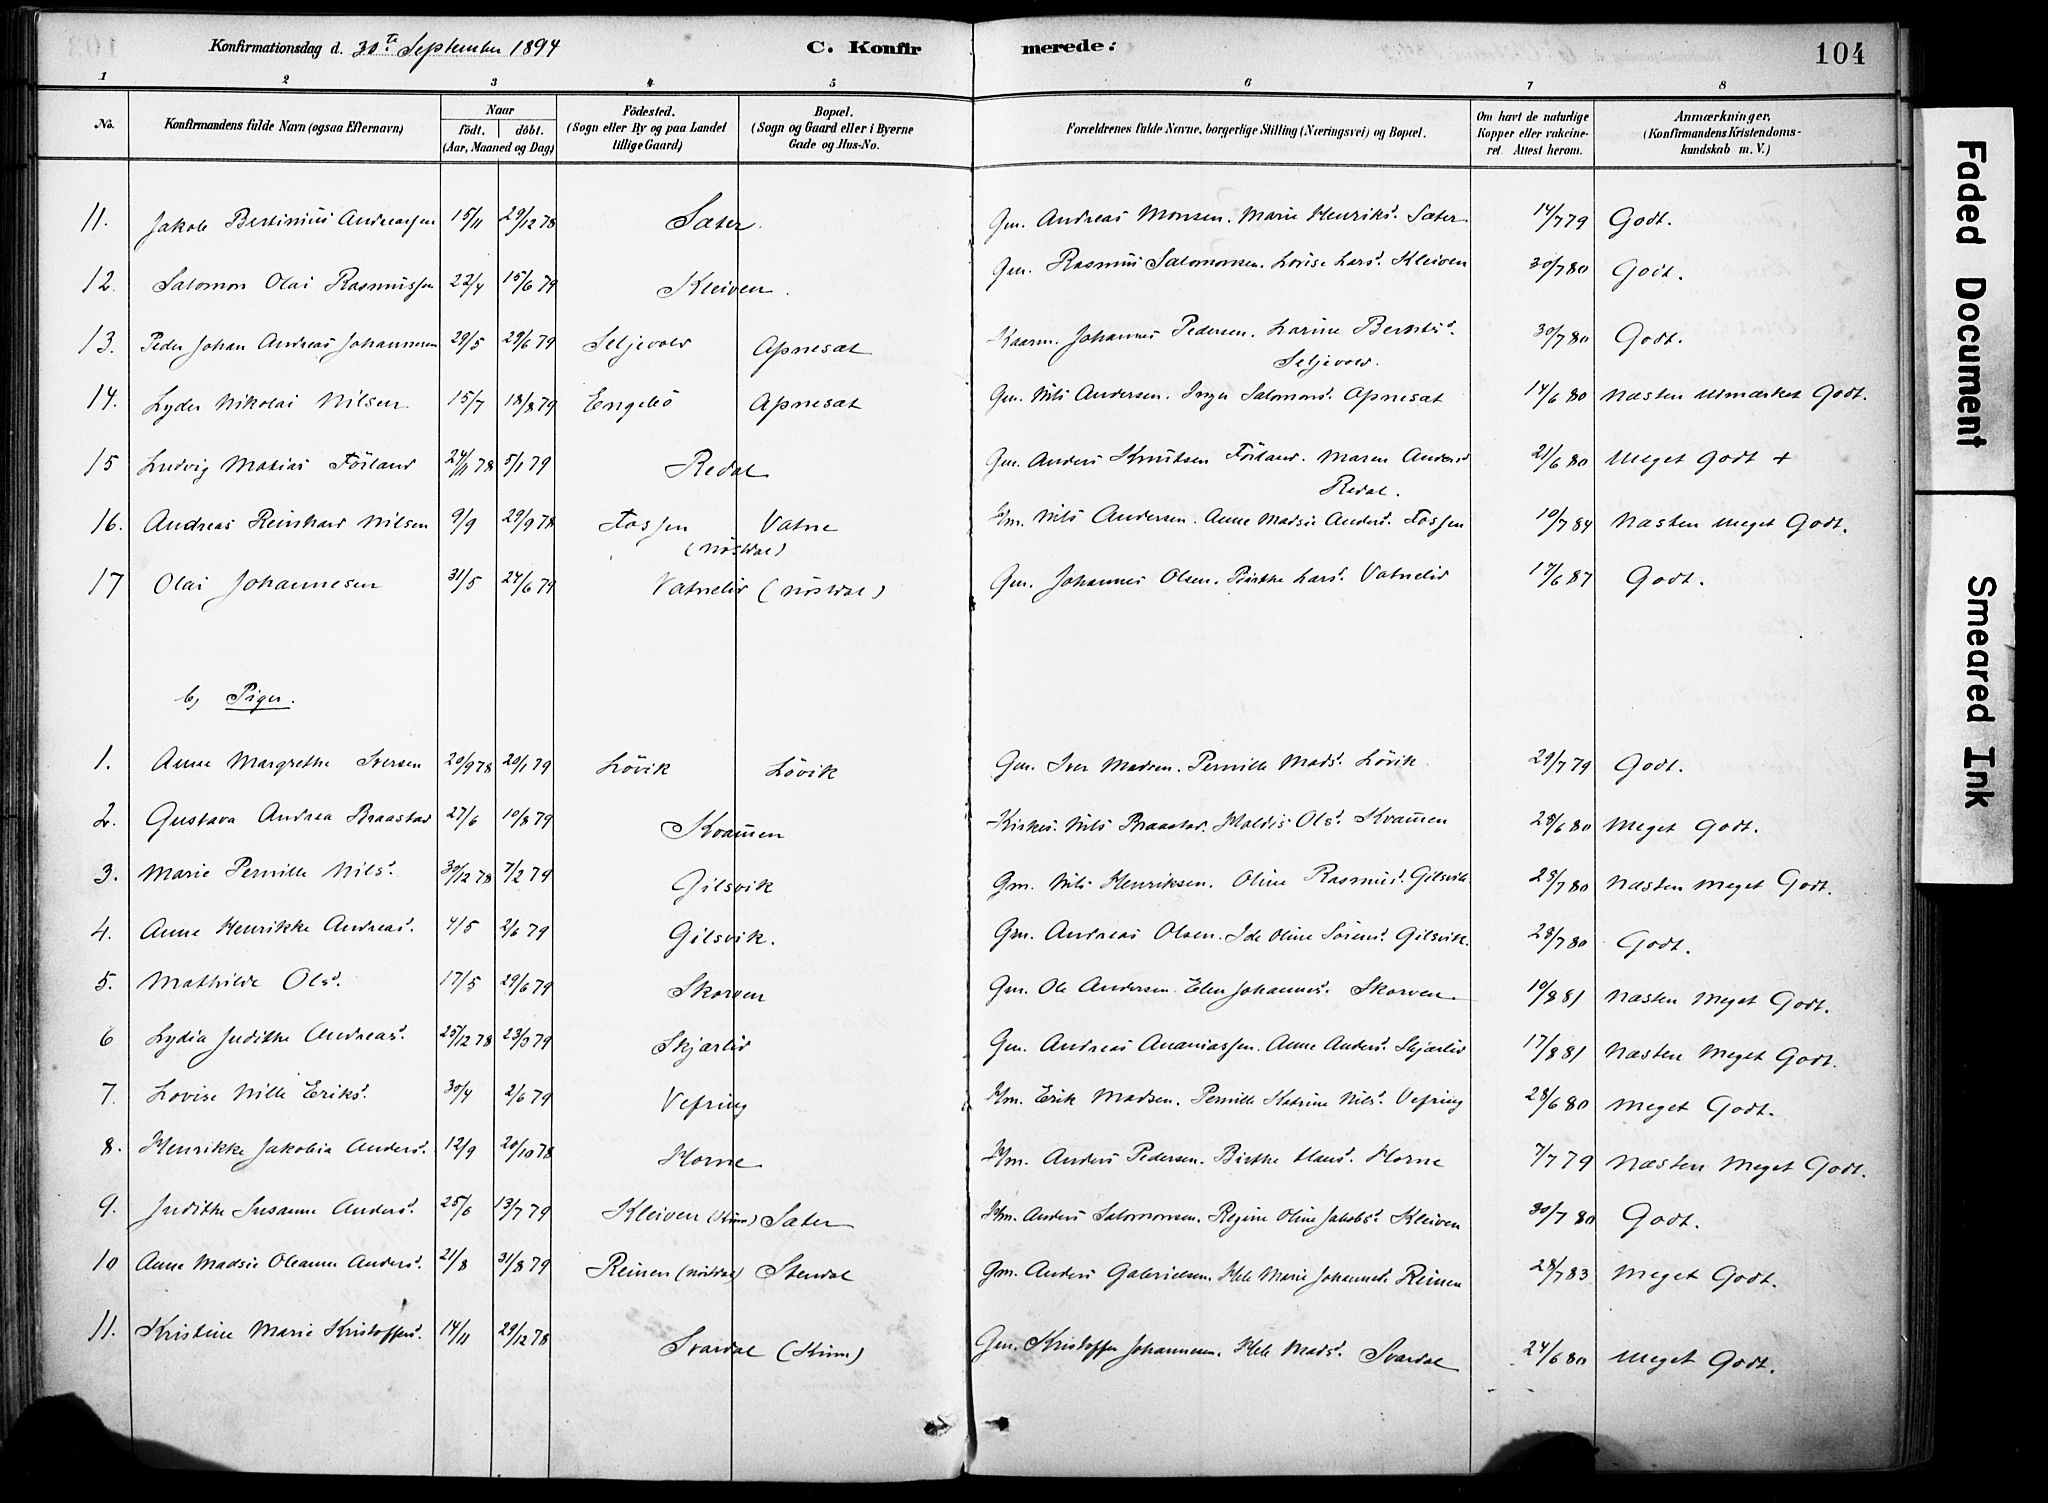 Konfirmationsdag d. 30te September 1894
C. Konfir merede:
104
1 2 3 4 5 6 7 8
No.
Konfirmandens fulde Navn (ogsaa Efternavn)
Naar
födt. döbt.
(Aar, Maaned og Dag)
Födested.
(Sogn eller By og paa Landet
tillige Gaard)
Bopæl.
(Sogn og Gaard eller i Byerne
Gade og Hus-No.
Forældrenes fulde Navne, borgerlige Stilling (Næringsvei) og Bopæl.
Om havt de naturlige
Kopper eller vakcine-
ret. Attest herom.
Anmærkninger,
(Konfirmandens Kristendoms-
kundskab m. V.)
11. Jakob Bertinius Andreassen 15/11 29/12 78 Sæter. Gm. Andreas Monsen. Marie Henriksd. Sæter 14/7 79 Godt.
12. Salomon Olai Rasmussen 22/4 15/6 79 Kleiven. Gm. Rasmus Salomonsen. Lovise Larsd. Kleiven 30/7 80 Godt.
13. Peder Johan Andreas Johannesen 29/5 29/6 79 Seljevold Apnesæt Kaarm. Johannes Pedersen. Larine Berntsd. 30/7 80 Godt.
Seljevold.
14. Lyder Nikolai Nilsen 15/7 18/8 79 Engebö Apnesæt Gm. Nils Andersen. Inger Salomonsd. Apnesæt 14/6 80 Næsten Udmærket Godt.
15 Ludvig Matias Förland 24/11 78 5/1 79 Redal Gm. Anders Knutsen Förland. Maren Andersd 21/6 80 Meget Godt +
Redal.
16. Andreas Reinhard Nilsen 9/9 29/9 78 Fossen Vatne Hm. Nils Andersen. Anne Madsie Andersd. Fossen 10/7 84 Næsten Meget Godt.
(Nöstdal)
17 Olai Johannesen 31/5 24/6 79 Vatnelid (Nöstdal) Gm. Johannes Olsen. Birthe Larsd. Vatnelid 17/6 87 Godt.
b, Piger.
1. Anne Margrethe Iversen 20/9 78 20/1 79 Lövik Lövik Gm. Iver Madsen. Pernille Madsd. Lövik 29/7 79 Godt.
2. Gustava Andrea Braastad 27/6 10/8 79 Kvammen Kirkes. Nils Braastad. Holdis Olsd. Kvammen 28/6 80 Meget Godt.
3. Marie Pernille Nilsd. 30/12 78 7/2 79 Gilsvik Gm. Nils Henriksen. Oline Rasmusd. Gilsvik 28/7 80 Næsten Meget Godt.
4. Anne Henrikke Andreasd. 4/5 2/6 79 Gilsvik. Gm. Andreas Olsen. Ide Oline Sörensd. Gilsvik. 28/7 80 Godt.
5. Mathilde Olsd. 17/5 29/6 79 Skorven Gm. Ole Andersen. Elen Johannesd. Skorven 10/8 81 Næsten Meget Godt.
6 Lydia Judithe Andreasd. 25/12 78 23/3 79 Skjærlid Gm. Andreas Ananiassen. Anne Andersd. Skjærlid 17/8 81 Næsten Meget Godt.
7. Lovise Nille Eriksd. 30/4 2/6 79 Vefring Hm. Erik Madsen. Pernille Katrine Nilsd. Vefring 28/6 80 Meget Godt.
8. Henrikke Jakobia Andersd. 12/9 20/10 78 Horne Hm. Anders Pedersen. Birthe Hansd. Horne 7/7 79 Næsten Meget Godt.
9. Judithe Susanne Andersd. 25/6 13/7 79 Kleiven (Kinn) Sæter Hm. Anders Salomonsen. Regine Oline Jakobsd. Kleiven 30/7 80 Godt.
10 Anne Madsie Oleanne Andersd. 21/8 31/8 79 Reinen (Nöstdal) Stendal Gm. Anders Gabrielsen. Hele Marie Johannesd. Reinen 28/7 83 Meget Godt.
11. Kristine Marie Kristoffersd. 14/11 29/12 78 Svardal (Kinn) Gm. Kristoffer Johannesen. Hele Madsd. Svardal 24/6 80 Meget Godt.
Faded Document
Smeared Ink